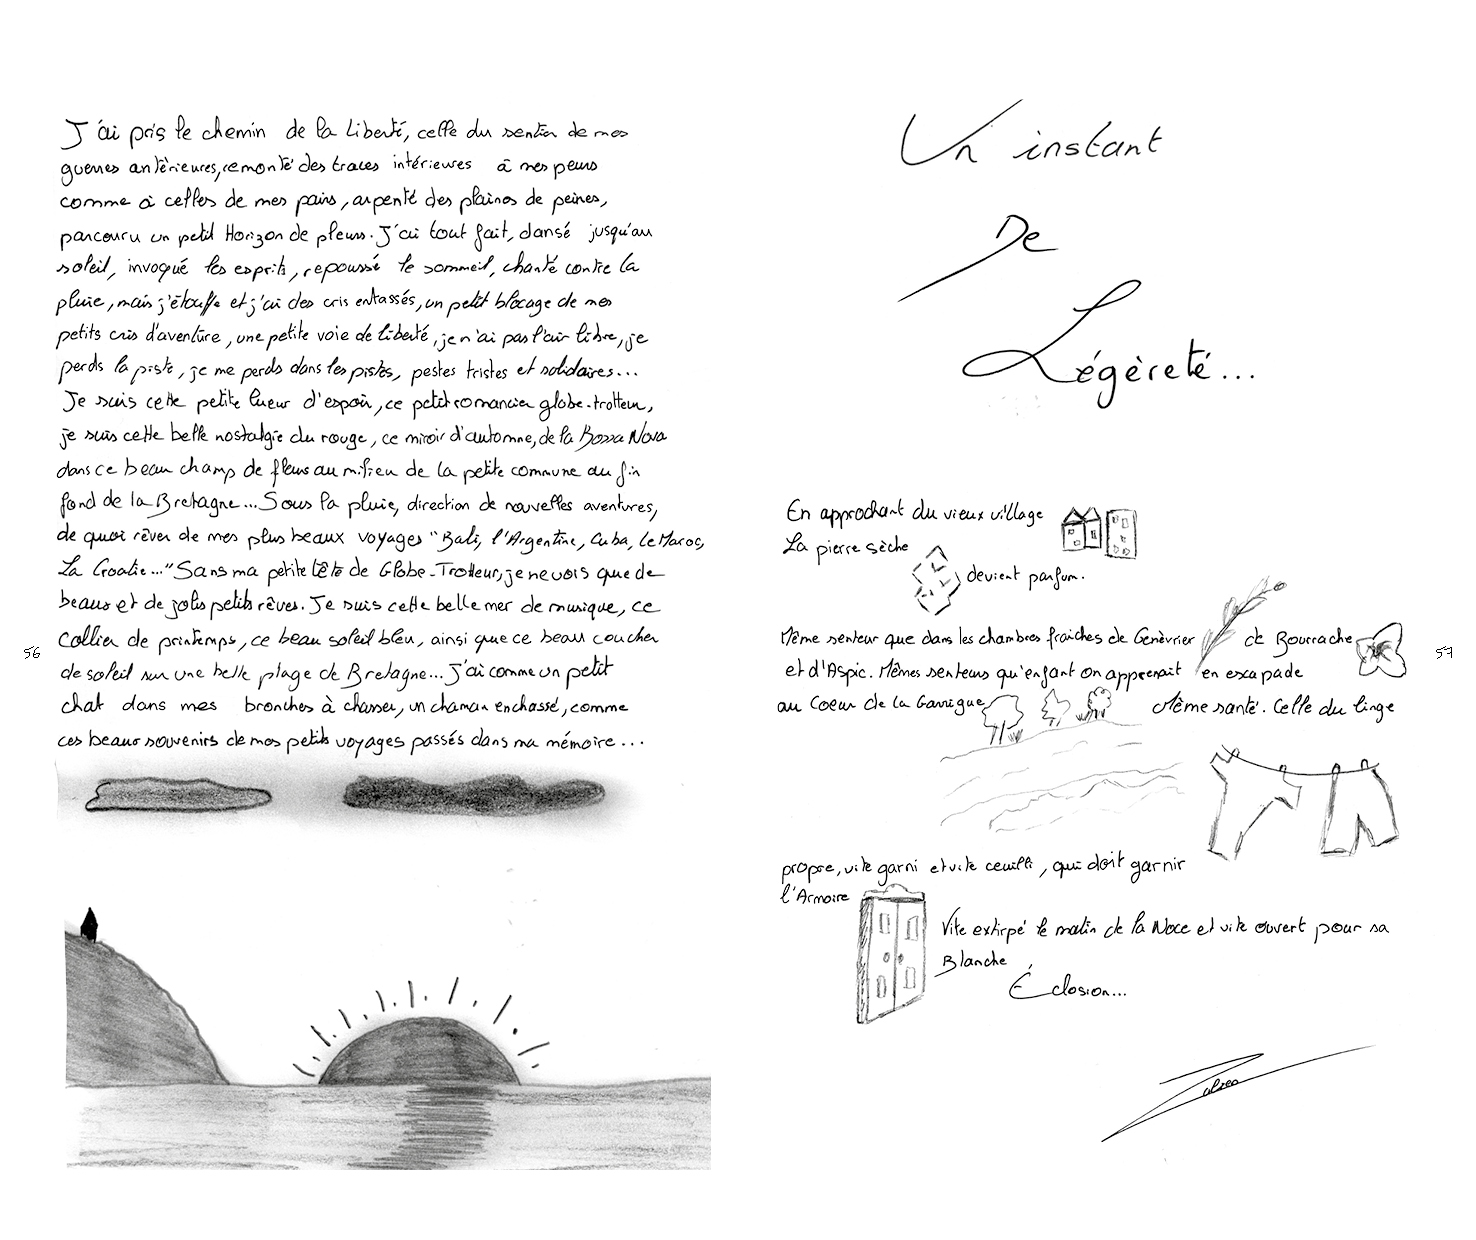 J'ai pris le chemin de la Liberté, celle du sentier de mes
guerres antérieures, remonté des traces intérieures à mes peurs
comme à celles de mes pairs, arpenté des plaines de peines,
parcouru un petit Horizon de pleurs. J'ai tout fait, dansé jusqu'au
soleil, invoqué les esprits, repoussé le sommeil, chanté contre la
pluie, mais j'étouffe et j'ai des cris entassés, un petit blocage de mes
petits cris d'aventure, une petite voie de liberté, je n'ai pas l'air libre, je
perds la piste, je me perds dans les pistes, pestes tristes et solidaires...
Je suis cette petite lueur d'espoir, ce petit romancier globe-trotteur,
je suis cette belle nostalgie du rouge, ce miroir d'automne, de la Bossa Nova
dans ce beau champ de fleurs au milieu de la petite commune au fin
fond de la Bretagne... Sous la pluie, direction de nouvelles aventures,
de quoi rêver de mes plus beaux voyages "Bali, l'Argentine, Cuba, Le Maroc,
La Croatie..." Sans ma petite tête de Globe-Trotteur, je ne vois que de
beaux et de jolis petits rêves. Je suis cette belle mer de musique, ce
collier de printemps, ce beau soleil bleu, ainsi que ce beau coucher
de soleil sur une belle plage de Bretagne... J'ai comme un petit
chat dans mes bronches à chasser, un chaman enchassé, comme
ces beaux souvenirs de mes petits voyages passés dans ma mémoire...
56
Un instant
De
Légèreté...
En approchant du vieux village
La pierre sèche
devient parfum.
Même senteur que dans les chambres fraîches de Genévrier de Bourrache
et d'Aspic. Mêmes senteurs qu'enfant on apprenait en escapade
au Coeur de la Garrigue Même santé. Celle du linge
propre, vite garni et vite cueilli, qui doit garnir
l'Armoire
Vite extirpé le matin de la Noce et vite ouvert pour sa
Blanche
Éclosion...
57